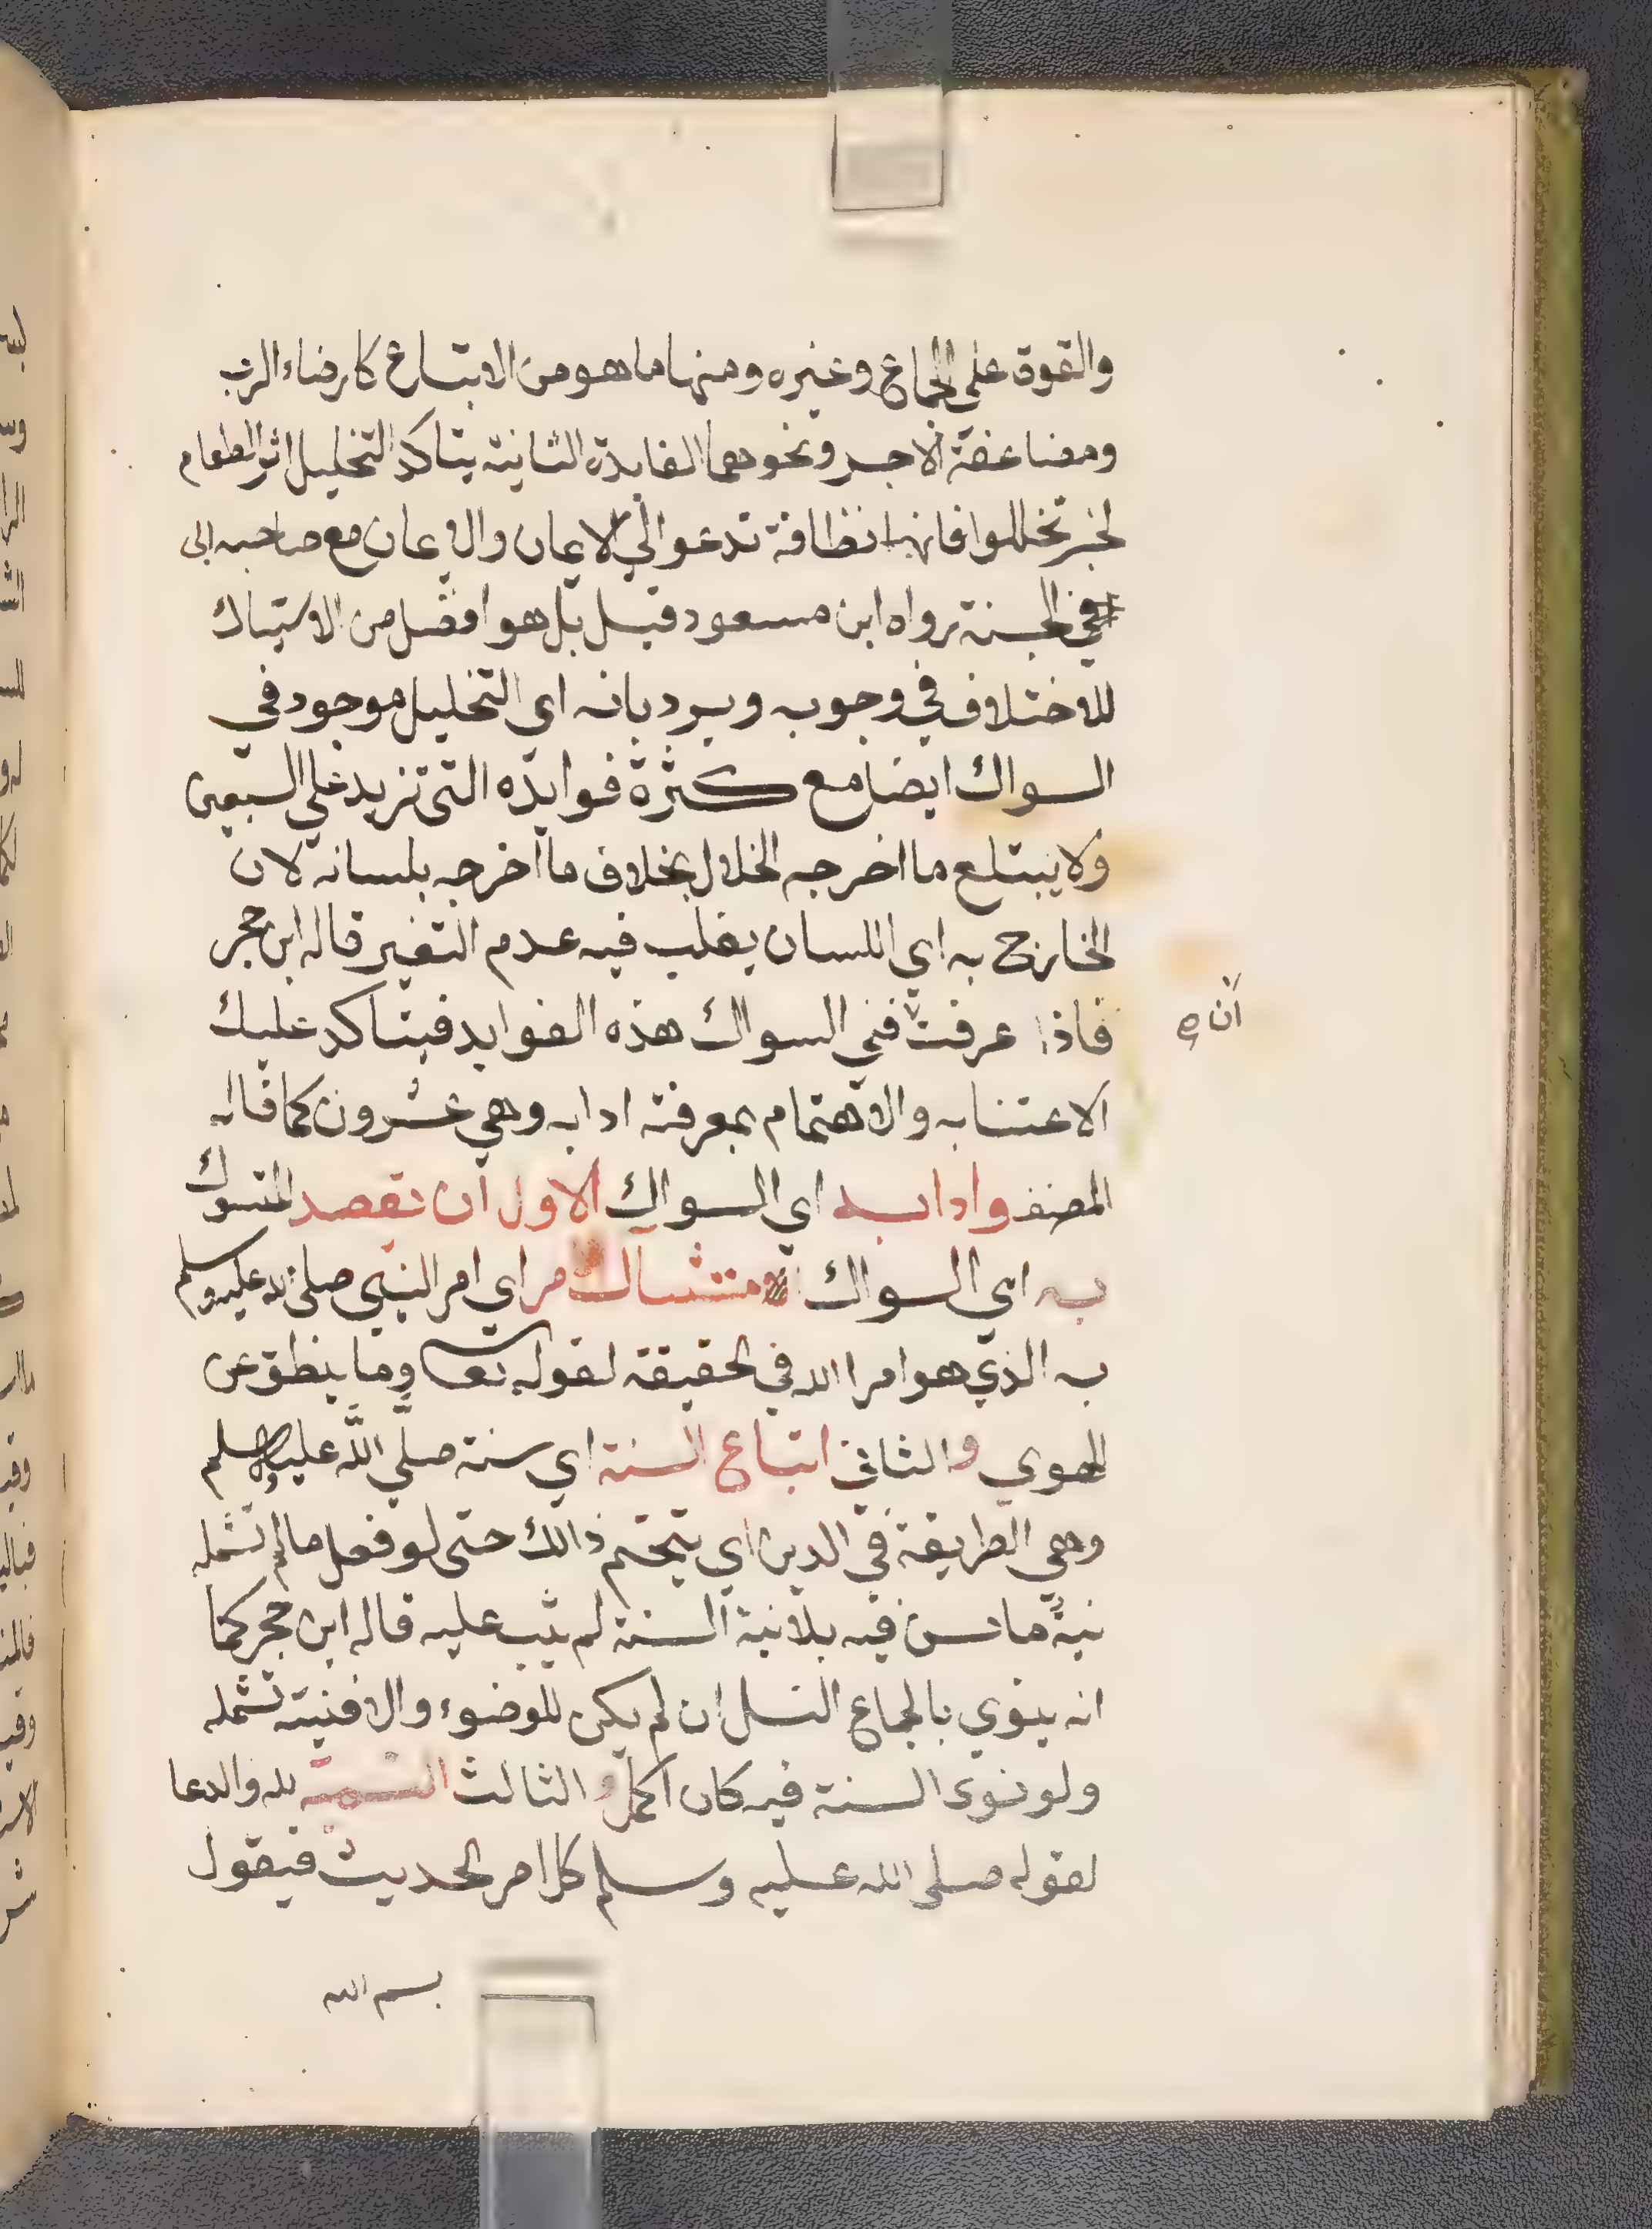 والقوة على الجماع وغيره ومنها ما هو من الاتباع كارضاء الرب
ومضاعفة الاجر ونحوهما الفايدة الثانية يتاكد التخليل اثر الطعام
لخبر تخللوا فانها نظافة تدعوا الي الايمان والايمان مع صاحبه الى
في الجنة رواه ابن مسعود قيل بل هو افضل من الاستياك
للاختلاف في وجوبه ويرد بانه اي التخليل موجود في
السواك ايضا مع كثرة فوايده التي تزيد علي السبعين
ولا يبتلع ما اخرجه الخلال بخلاف ما اخرجه بلسانه لان
الخارج به اي اللسان يغلب فيه عدم التغير قاله ابن حجر
فاذا عرفت في السواك هذه الفوايد فيتاكد عليك
ان صح
الاعتنا به والاهتمام بمعرفة ادابه وهي عشرون كما قاله
المصنف وادابه اي السواك الاول ان يقصد المتسوك
به اي السواك امتثال امر اي امر النبي صلى الله عليه وسلم
به الذي هو امر الله في الحقيقة لقوله تعا وما ينطق عن
الهوي والثاني اتباع السنة اي سنة صلي الله عليه وسلم
وهي الطريقة في الدين اي يتحتم ذالك حتى لو فعل ما لم تشمله
نية ما سن فيه بلا نية السنة لم يثب عليه قاله ابن حجر كما
انه ينوي بالجماع النسل ان لم يكن للوضوء والا فنيته تشمله
ولو نوى السنة فيه كان اكمل و الثالث التسمية بله والدعا
لقوله صلى الله عليه وسلم كل امر الحديث فيقول
بسم الله